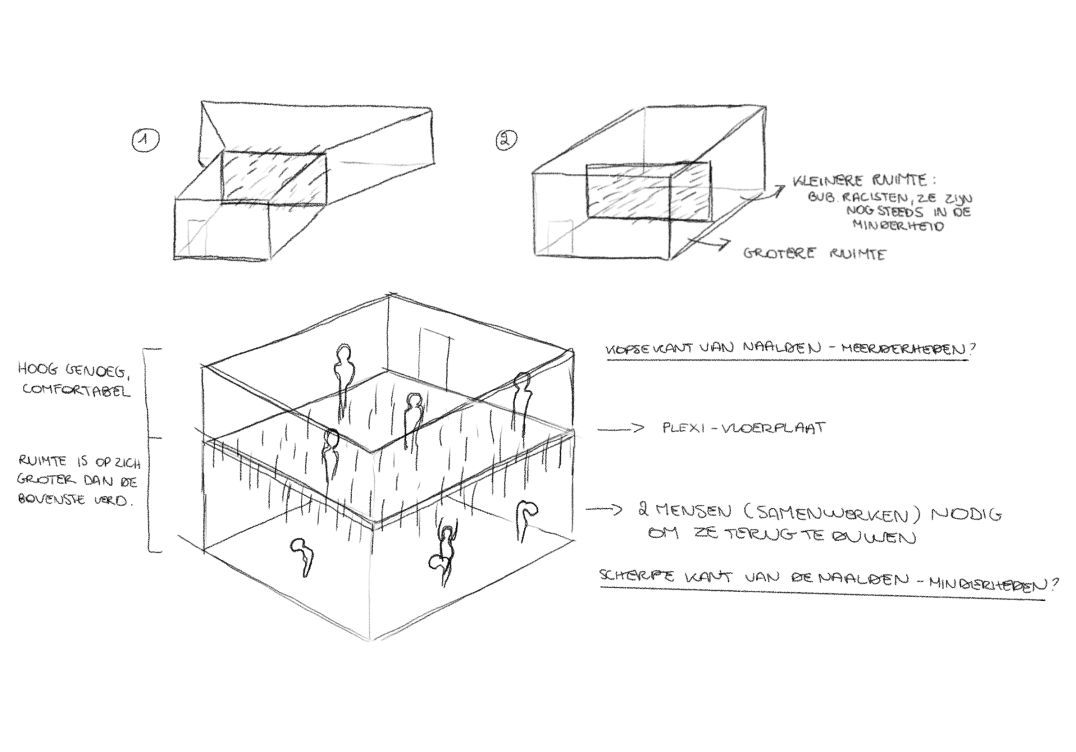 1
2
KLEINERE RUIMTE:
BUB. RACISTEN, ZE ZIJN
NOG STEEDS IN DE
MINDERHEID
GROTERE RUIMTE
HOOG GENOEG,
COMFORTABEL
RUIMTE IS OP ZICH
GROTER DAN DE
BOVENSTE VERD.
KOPSE KANT VAN NAALDEN - MEERDERHEDEN?
PLEXI-VLOERPLAAT
2 MENSEN (SAMENWERKEN) NODIG
OM ZE TERUG TE DUWEN
SCHERPE KANT VAN DE NAALDEN - MINDERHEDEN?